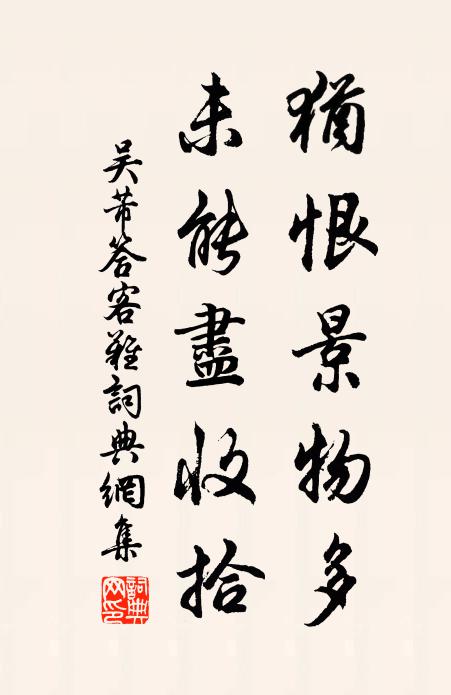 猶恨景物多
未能盡收拾
吴芾答客難詞典網集
詞典網印